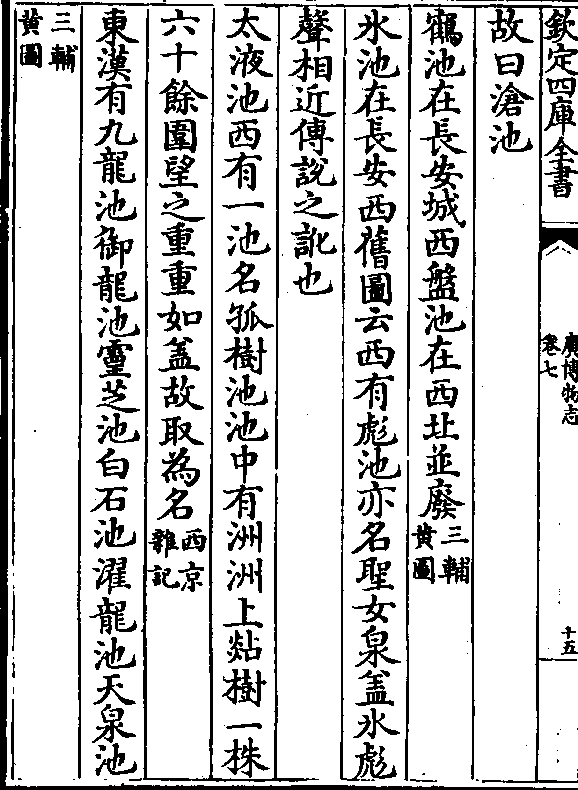 欽定四庫全書
廣博物志
卷七
十五
故曰滄池
鶴池在長安城西盤池在西北並廢三輔
黄圖
氷池在長安西舊圖云西有彪池亦名聖女泉盖氷彪
聲相近傳說之訛也
太液池西有一池名孤樹池池中有洲洲上㸃樹一株
六十餘圍望之重重如盖故取為名西京
雜記
東漢有九龍池御龍池靈芝池白石池濯龍池天泉池
三輔
黄圖